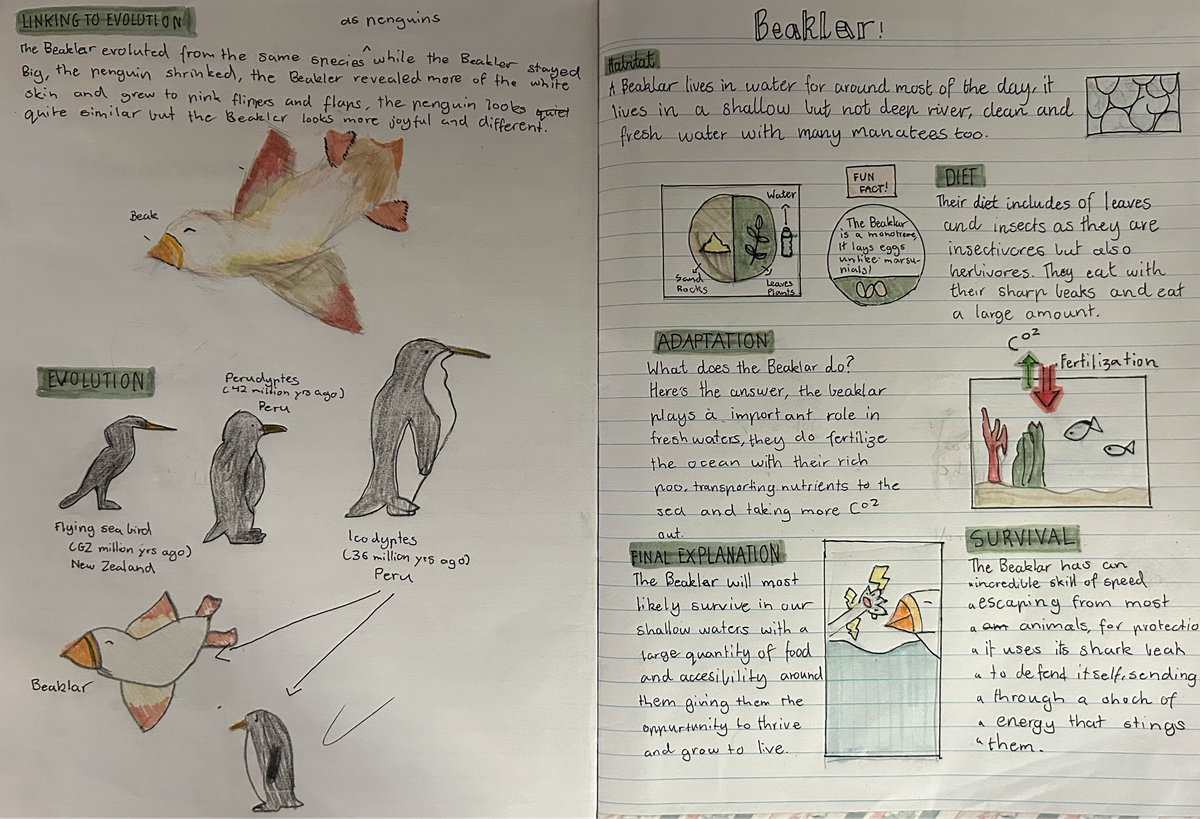 LINKING TO EVOLUTION
as penguins
The Beaklar evoluted from the same species ^ while the Beaklar stayed
Big, the penguin shrinked, the Beakler revealed more of the white
skin and grew to pink flippers and flaps, the penguin looks quiet
quite similar but the Beaklar looks more joyful and different.
Beak
EVOLUTION
Perudyptes
(42 million yrs ago)
Peru
Flying sea bird
(62 million yrs ago)
New Zealand
Icodyptes
(36 million yrs ago)
Peru
Beaklar
Beaklar!
Habitat
A Beaklar lives in water for around most of the day, it
lives in a shallow but not deep river, clean and
fresh water with many manatees too.
Water
Sand
Rocks
Leaves
Plants
FUN
FACT!
The Beaklar
is a monotreme,
It lays eggs
unlike marsu-
pials!
DIET
Their diet includes of leaves
and insects as they are
insectivores but also
herbivores. They eat with
their sharp beaks and eat
a large amount.
ADAPTATION
What does the Beaklar do?
Here's the answer, the beaklar
plays a important role in
fresh waters, they do fertilize
the ocean with their rich
poo, transporting nutrients to the
sea and taking more CO²
out.
CO²
Fertilization
FINAL EXPLANATION
The Beaklar will most
likely survive in our
shallow waters with a
large quantity of food
and accesibility around
them giving them the
oppurtunity to thrive
and grow to live.
SURVIVAL
The Beaklar has an
incredible skill of speed
escaping from most
am animals, for protectio
it uses its shark beak
to defend itself, sending
through a shock of
energy that stings
them.